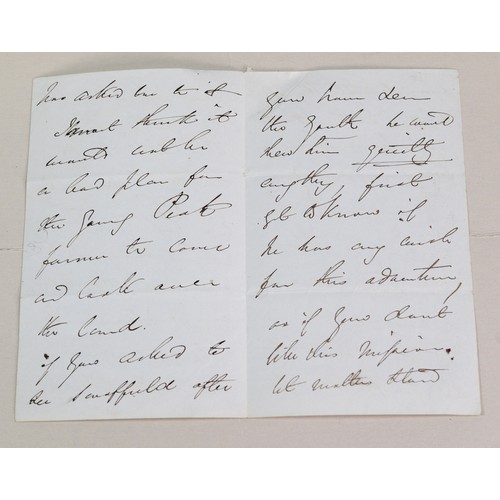 has asked me to
I must think it
would not be
a bad plan for
the young Peat
farmer to come
and look over
the land.
if you asked to
see after
you have
the he would
show him quietly
anything, first
get to know if
he has any wish
for this adventure,
as if you don't
like this mission.
let matters stand